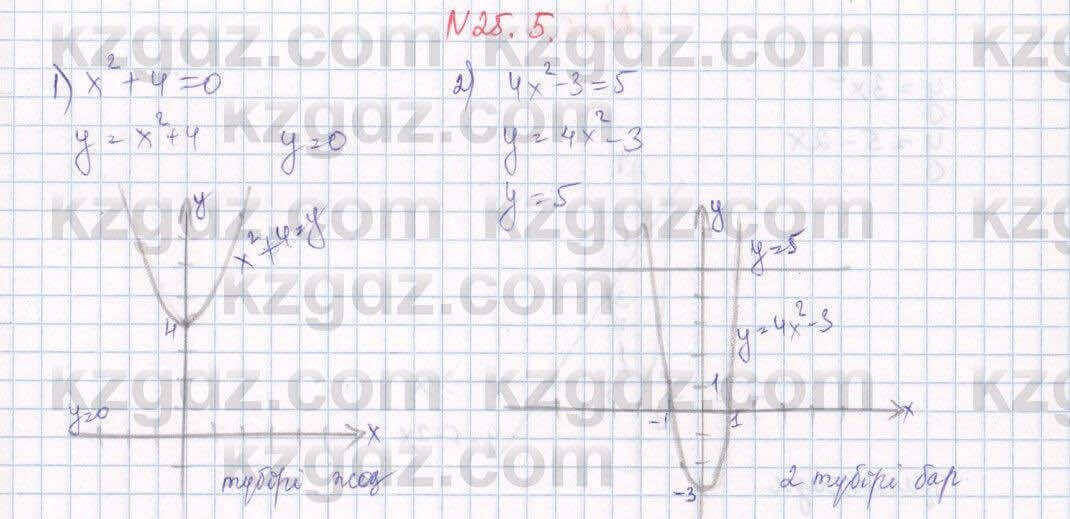 N25.5.
1) x²+4=0
y=x²+4 y=0
y
x²+4=y
4
y=0
x
түбірі жоқ
2) 4x²-3=5
y=4x²-3
y=5
y
y=5
y=4x²-3
1
-1 1 x
-3
2 түбірі бар
kzgdz.com